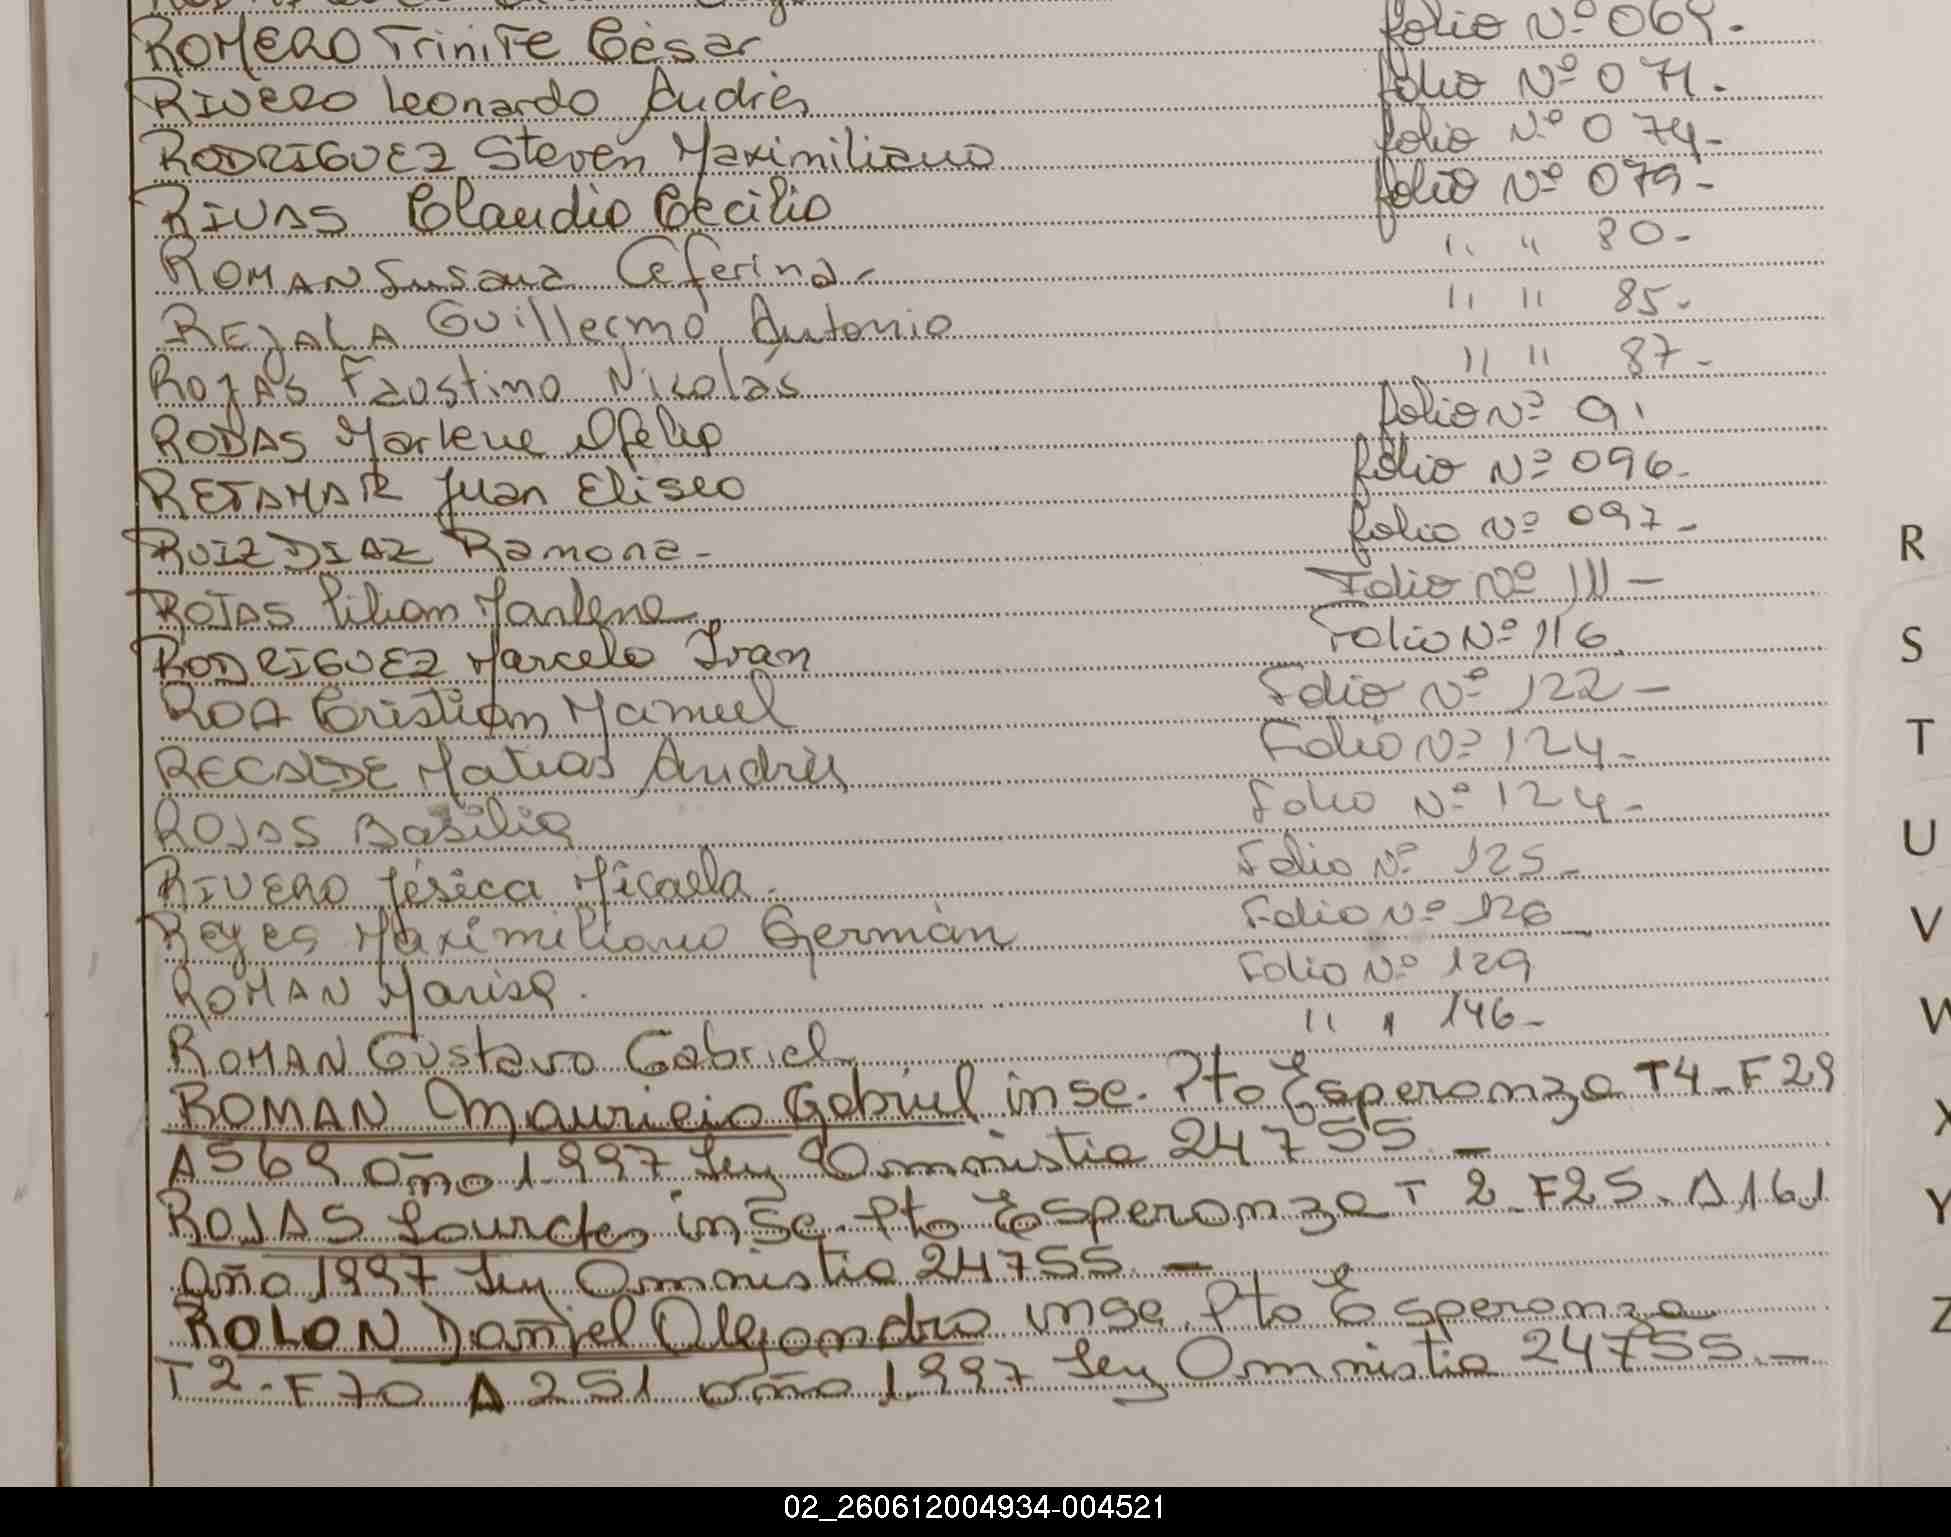 ROMERO Trinite César folio Nº 069.
RIVERO Leonardo Andrés folio Nº 071.
RODRIGUEZ Steven Maximiliano folio Nº 074-
RIVAS Claudio Cecilio folio Nº 079-
ROMAN Susana Ceferina- " " 80-
REJALA Guillermo Antonio " " 85-
ROJAS Faustino Nicolás " " 87-
RODAS Marlene Ofelia folio Nº 91
RETAMAR Juan Eliseo folio Nº 096-
RUIZ DIAZ Ramona- folio Nº 097-
ROJAS Lilian Marlene Folio Nº 111-
RODRIGUEZ Marcelo Ivan Folio Nº 116
ROA Cristian Manuel Folio Nº 122-
RECALDE Matias Andrés Folio Nº 124-
ROJAS Basilia Folio Nº 124-
RIVERO Jésica Micaela- Folio Nº 125-
Reyes Maximiliano Germán Folio Nº 126
ROMAN Marisa. Folio Nº 129
ROMAN Gustavo Gabriel " " 146-
ROMAN Mauricio Gabriel insc. Pto Esperanza T4-F29
A569 año 1.997 Ley Omnistia 24755.-
ROJAS Lourdes insc. Pto Esperanza T 2-F25-A161
año 1997 Ley Omnistia 24755.-
ROLON Daniel Alejandro insc. Pto Esperanza
T2-F70 A251 año 1.997 Ley Omnistia 24755.-
R
S
T
U
V
W
X
Y
Z
02_260612004934-004521